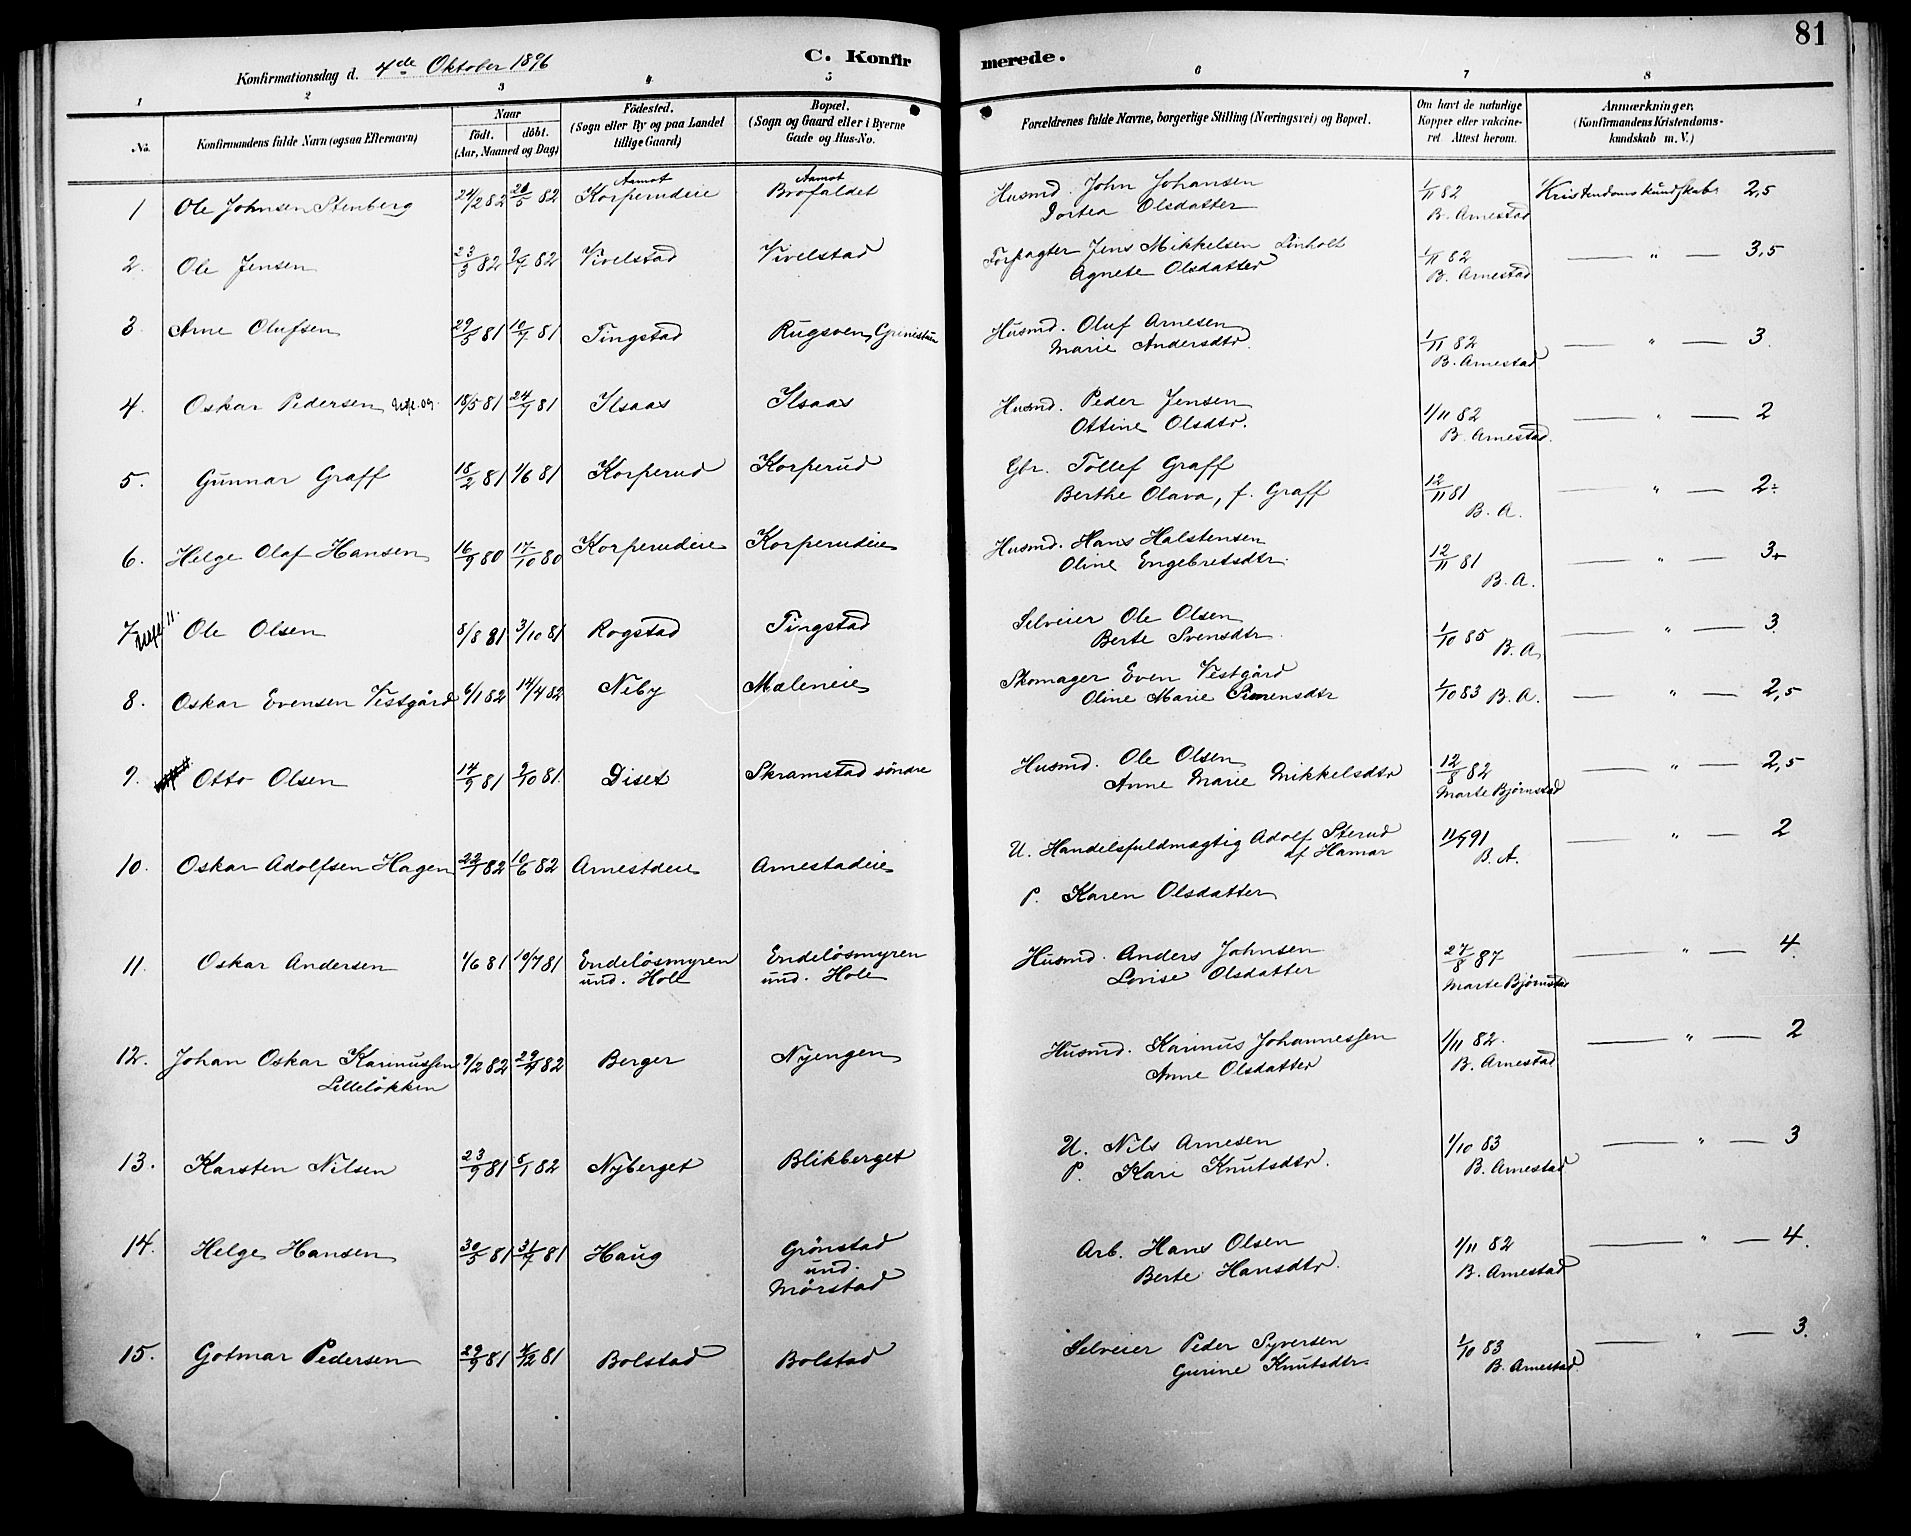 81
Konfirmationsdag d. 4de Oktober 1896 C. Konfirmerede.
1 2 3 4 5 6 7 8
No. Konfirmandens fulde Navn (ogsaa Efternavn) Naar födt. döbt. (Aar, Maaned og Dag) Födested. (Sogn eller By og paa Landet tillige Gaard) Bopæl. (Sogn og Gaard eller i Byerne Gade og Hus-No. Forældrenes fulde Navne, borgerlige Stilling (Næringsvei) og Bopæl. Om havt de naturlige Kopper eller vakcineret. Attest herom. Anmærkninger. (Konfirmandens Kristendomskundskab m. V.)
1 Ole Johnsen Stenberg 24/2 82 28/5 82 Aamot Korperudeie Aamot Brofaldet Husmd. John Johansen 1/11 82 Kristendomskundskab 2,5
Dortea Olsdatter B. Arnestad
2. Ole Jensen 23/3 82 82 Vivelstad Vivelstad Forpagter Jens Mikkelsen Linholt 1/11 82 — " — 3,5
Agnete Olsdatter B. Arnestad
3. Arne Olufsen 29/5 81 10/7 81 Tingstad Rugsven Husmd. Oluf Arnesen 1/11 82 — " — 3.
Marie Andersdtr. B. Arnestad
4. Oskar Pedersen 18/5 81 24/7 81 Ilsaas Ilsaas Husmd. Peder Jensen 1/11 82 — " — 2
Ottine Olsdtr. B. Arnestad.
5. Gunnar Graff 18/2 81 1/6 81 Korperud Korperud Gbr. Tollef Graff 12/11 81 — " — 2÷
Berthe Olava, f. Graff B. A.
6. Helge Olaf Hansen 16/9 80 17/10 80 Korperudeie Korperudeie Husmd. Hans Halstensen 12/11 81 — " — 3+
Oline Engebretsdtr. B. A.
7 Ole Olsen 8/8 81 3/10 81 Rogstad Tingstad Selveier Ole Olsen 1/10 85 — " — 3
Berte Svensdtr. B. A.
8. Oskar Evensen Vestgård 6/1 82 14/4 82 Neby Mæleneie Skomager Even Vestgård 1/10 83 B. A. — " — 2,5
Oline Marie Simensdtr
9. Otto Olsen 14/9 81 2/10 81 Diset Skramstad söndre Husmd. Ole Olsen 12/8 82 — " — 2,5
Anne Marie Mikkelsdtr Marte Bjørnstad
10. Oskar Adolfsen Hagen 22/1 82 10/6 82 Arnestdeie Arnestadeie U. Handelsfuldmægtig Adolf Sterud 91 — " — 2
af Hamar B. A.
P. Karen Olsdatter
11. Oskar Andersen 1/6 81 10/7 81 Endelösmyren Endelösmyren Husmd. Anders Johnsen 27/8 87 — " — 4.
und. Hole und. Hole Lovise Olsdatter Marte Bjørnstad
12. Johan Oskar Karinussen 9/2 82 82 Berger Nyengen Husmd. Karinus Johannessen 1/11 82. — " — 2
Lilleløkken Anne Olsdatter B. Arnestad
13. Karsten Nilsen 23/9 81 8/1 82 Nyberget Blikberget U. Nils Arnesen 1/10 83 — " — 3
P. Kari Knutsdtr. B. Arnestad
14. Helge Hansen 30/5 81 31/7 81 Haug Grönstad Arb. Hans Olsen 1/11 82 — " — 4.
und. Mörstad Berte Hansdtr. B. Arnestad
15. Gotmar Pedersen 29/9 81 4/12 81 Bolstad Bolstad Selveier Peder Syversen 1/10 83 — " — 3.
Gurine Knutsdtr. B. Arnestad.